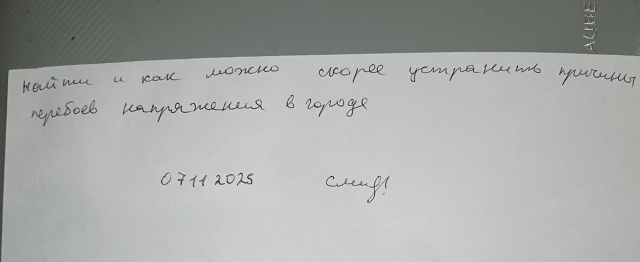 найти и как можно скорее устранить причины
перебоев напряжения в городе
07112025
AUBE